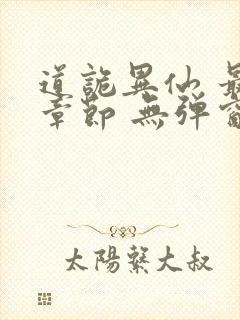 道詭異仙 最
章節 無彈窗
太陽繫大叔